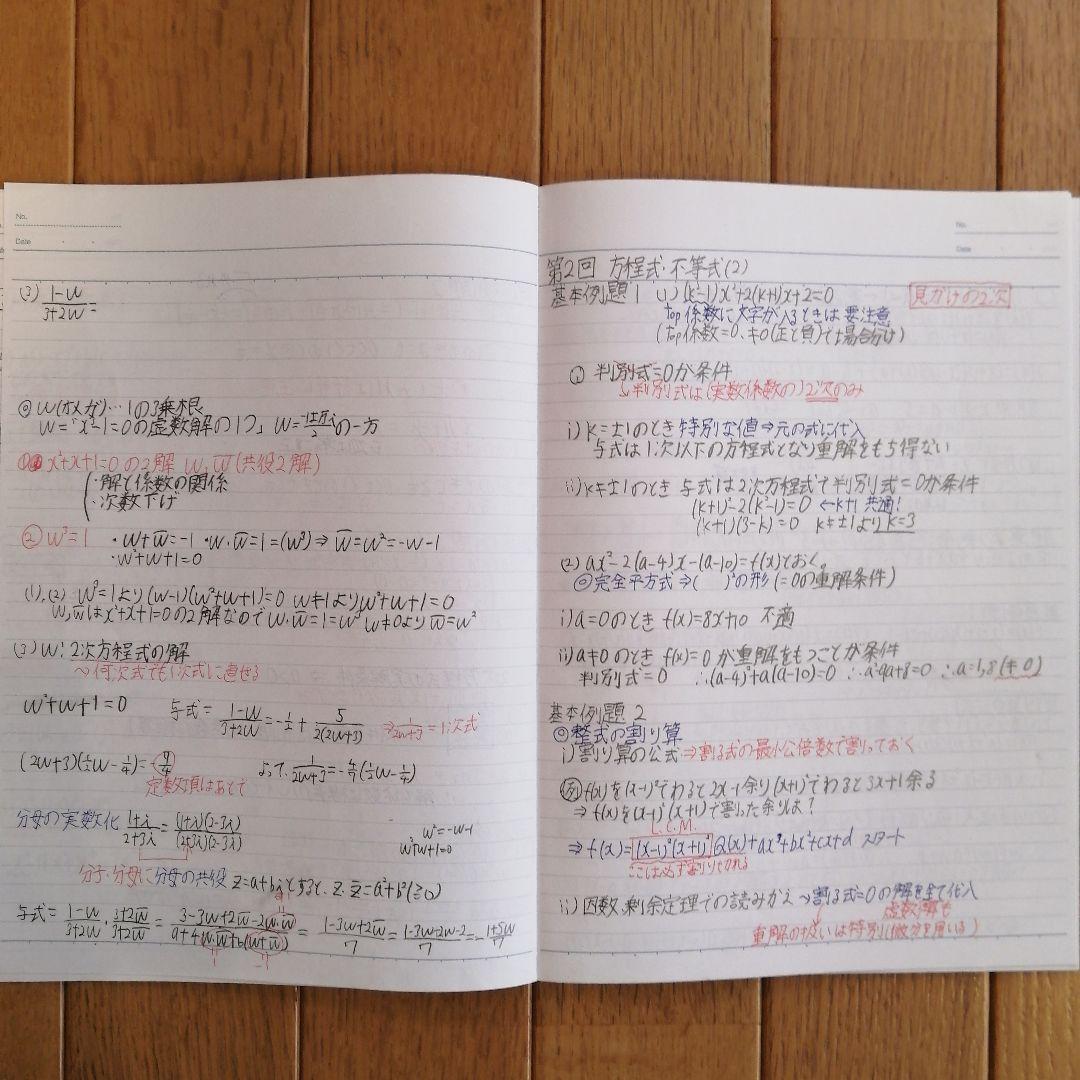 No.
Date
(3) (1-w)/(3+2w) =
◎ w(オメガ)… 1の3乗根
w=「x³-1=0の虚数解の1つ」 w=(-1±√3i)/2 の一方
① x²+x+1=0の2解 w, w̄ (共役2解)
・解と係数の関係
・次数下げ
② w³=1 ・w+w̄=-1 ・w・w̄=1=(w³) ⇒ w̄=w²=-w-1
・w²+w+1=0
(1),(2) w³=1より (w-1)(w²+w+1)=0 w≠1より w²+w+1=0
w, w̄はx²+x+1=0の2解なのでw・w̄=1=w³ w≠0より w̄=w²
(3) w: 2次方程式の解
〜何次式でも1次式に直せる
w²+w+1=0 与式= (1-w)/(3+2w) = -1/2 + 5/(2(2w+3)) ⇒ 1/(2w+3) = 1次式
(2w+3)(1/2w-1/4)=-7/4 よって, 1/(2w+3)=-4/7(1/2w-1/4)
定数項はあとで
分母の実数化 (1+i)/(2+3i) = (1+i)(2-3i)/(2+3i)(2-3i)
w²=-w-1
w²+w+1=0
分子・分母に分母の共役 z=a+biとすると, z・z̄=a²+b²(≧0)
与式= (1-w)/(3+2w)・(3+2w̄)/(3+2w̄) = (3-3w+2w̄-2w・w̄)/(9+4w・w̄+6(w+w̄)) = (1-3w+2w̄)/7 = (1-3w-2w-2)/7 = -(1+5w)/7
1 -1
No.
Date
第2回 方程式・不等式(2)
基本例題1 (1) (k²-1)x²+2(k+1)x+2=0 見かけの2次
top係数に文字が入るときは要注意
(top係数=0, ≠0(正と負)で場合分け)
① 判別式=0が条件
↳判別式は(実数係数の)2次のみ
i) k=±1のとき 特別な値⇒元の式に代入
与式は1次以下の方程式となり重解をもち得ない
ii) k≠±1のとき 与式は2次方程式で判別式=0が条件
(k+1)²-2(k²-1)=0 ←k+1 共通!
(k+1)(3-k)=0 k≠±1より k=3
(2) ax²-2(a-4)x-(a-10)=f(x)とおく。
◎完全平方式⇒( )²の形 (=0の重解条件)
i) a=0のとき f(x)=8x+10 不適
ii) a≠0のとき f(x)=0が重解をもつことが条件
判別式=0 ∴(a-4)²+a(a-10)=0 ∴a²-9a+8=0 ∴a=1,8(≠0)
基本例題2
◎整式の割り算
i) 割り算の公式⇒割る式の最小公倍数で割っておく
例 f(x)を(x-1)²でわると2x-1余り(x+1)²でわると3x+1余る
⇒ f(x)を(x-1)²(x+1)²で割った余りは?
L.C.M.
⇒ f(x)=(x-1)²(x+1)²Q(x)+ax³+bx²+cx+d スタート
ここは必ず割りきれる
ii) 因数、剰余定理での読みかえ→割る式=0の解を全て代入
虚数解も
重解の扱いは特別(微分を用いる)